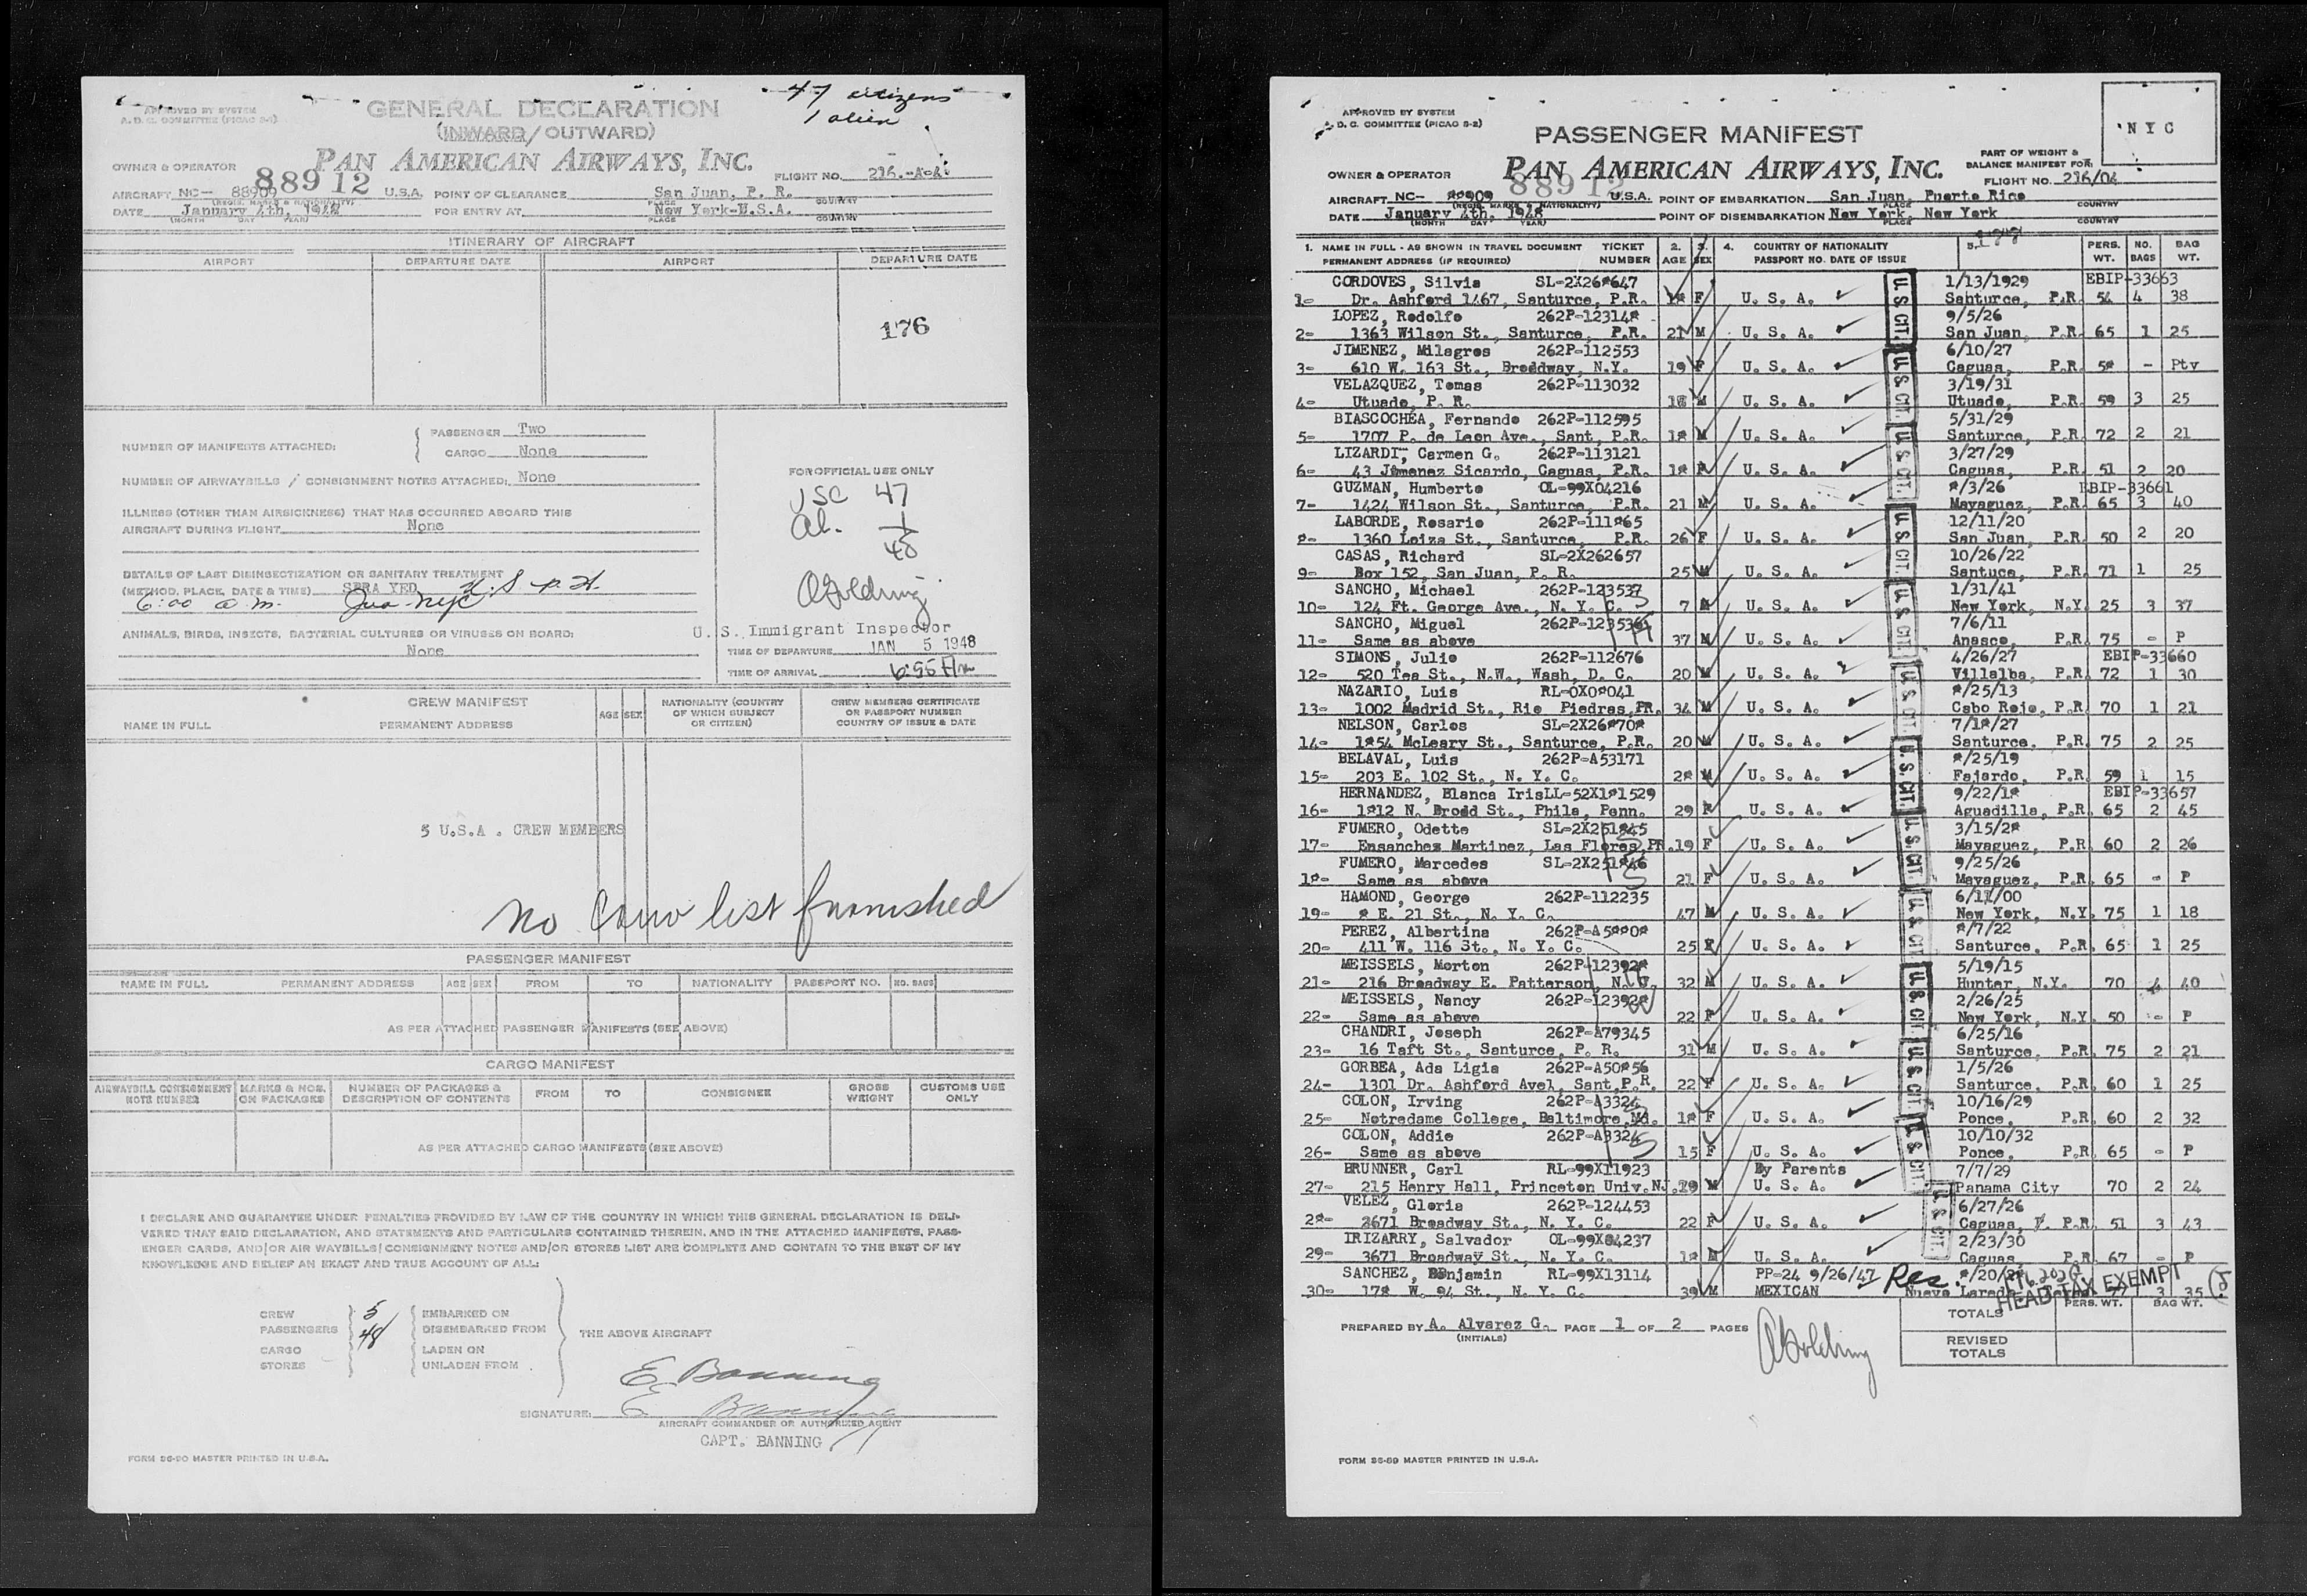 47 citizens
1 alien
APPROVED BY SYSTEM
A. D. C. COMMITTEE (PICAO S-1)
GENERAL DECLARATION
(INWARD/OUTWARD)
OWNER & OPERATOR
PAN AMERICAN AIRWAYS, INC.
FLIGHT NO.
88912
AIRCRAFT NC- 88909 U.S.A. POINT OF CLEARANCE San Juan, P. R.
(REGIS. MARKS & NATIONALITY) PLACE COUNTRY
DATE January 4th, 1948 FOR ENTRY AT New York-U.S.A.
(MONTH DAY YEAR) PLACE COUNTRY
ITINERARY OF AIRCRAFT
AIRPORT DEPARTURE DATE AIRPORT DEPARTURE DATE
176
NUMBER OF MANIFESTS ATTACHED: PASSENGER Two
CARGO None
NUMBER OF AIRWAYBILLS / CONSIGNMENT NOTES ATTACHED: None
ILLNESS (OTHER THAN AIRSICKNESS) THAT HAS OCCURRED ABOARD THIS
AIRCRAFT DURING FLIGHT None
DETAILS OF LAST DISINSECTIZATION OR SANITARY TREATMENT
(METHOD, PLACE, DATE & TIME) SPRAYED
6:00 a.m.
ANIMALS, BIRDS, INSECTS, BACTERIAL CULTURES OR VIRUSES ON BOARD:
None
FOR OFFICIAL USE ONLY
USC 47
Al. 1
48
AGolding
U. S. Immigrant Inspector
TIME OF DEPARTURE JAN 5 1948
TIME OF ARRIVAL 6:55 Am
CREW MANIFEST
NAME IN FULL PERMANENT ADDRESS AGE SEX NATIONALITY (COUNTRY OF WHICH SUBJECT OR CITIZEN) CREW MEMBERS CERTIFICATE OR PASSPORT NUMBER COUNTRY OF ISSUE & DATE
5 U.S.A. CREW MEMBERS
No Crew list furnished
PASSENGER MANIFEST
NAME IN FULL PERMANENT ADDRESS AGE SEX FROM TO NATIONALITY PASSPORT NO. NO. BAGS
AS PER ATTACHED PASSENGER MANIFESTS (SEE ABOVE)
CARGO MANIFEST
AIRWAYBILL CONSIGNMENT NOTE NUMBER MARKS & NOS. ON PACKAGES NUMBER OF PACKAGES & DESCRIPTION OF CONTENTS FROM TO CONSIGNEE GROSS WEIGHT CUSTOMS USE ONLY
AS PER ATTACHED CARGO MANIFESTS (SEE ABOVE)
I DECLARE AND GUARANTEE UNDER PENALTIES PROVIDED BY LAW OF THE COUNTRY IN WHICH THIS GENERAL DECLARATION IS DELI-
VERED THAT SAID DECLARATION, AND STATEMENTS AND PARTICULARS CONTAINED THEREIN, AND IN THE ATTACHED MANIFESTS, PASS-
ENGER CARDS, AND/OR AIR WAYBILLS/CONSIGNMENT NOTES AND/OR STORES LIST ARE COMPLETE AND CONTAIN TO THE BEST OF MY
KNOWLEDGE AND BELIEF AN EXACT AND TRUE ACCOUNT OF ALL:
CREW 5 EMBARKED ON
PASSENGERS 48 DISEMBARKED FROM THE ABOVE AIRCRAFT
CARGO LADEN ON
STORES UNLADEN FROM
E Banning
SIGNATURE: E Banning
AIRCRAFT COMMANDER OR AUTHORIZED AGENT
CAPT. BANNING
FORM 36-90 MASTER PRINTED IN U.S.A.
APPROVED BY SYSTEM
A. D. C. COMMITTEE (PICAO S-2)
PASSENGER MANIFEST
NYC
PART OF WEIGHT &
BALANCE MANIFEST FOR
OWNER & OPERATOR PAN AMERICAN AIRWAYS, INC.
FLIGHT NO. 216/04
88912
AIRCRAFT NC- **909 U.S.A. POINT OF EMBARKATION San Juan, Puerto Rico
(REGIS. MARKS & NATIONALITY) PLACE COUNTRY
DATE January 4th, 1948 POINT OF DISEMBARKATION New York, New York
(MONTH DAY YEAR) PLACE COUNTRY
1. NAME IN FULL - AS SHOWN IN TRAVEL DOCUMENT TICKET 2. 3. 4. COUNTRY OF NATIONALITY 5. PERS. NO. BAG
PERMANENT ADDRESS (IF REQUIRED) NUMBER AGE SEX PASSPORT NO. DATE OF ISSUE WT. BAGS WT.
CORDOVES, Silvia SL-2X26*647 1/13/1929 EBIP-33663
1- Dr. Ashford 1467, Santurce, P.R. 1* F U. S. A. Santurce, P.R. 54 4 38
LOPEZ, Rodolfo 262P-12314* 9/5/26
2- 1363 Wilson St., Santurce, P.R. 21 M U. S. A. San Juan, P.R. 65 1 25
JIMENEZ, Milagros 262P-112553 6/10/27
3- 610 W. 163 St., Broadway, N.Y. 19 F U. S. A. Caguas, P.R. 5* - Ptv
VELAZQUEZ, Tomas 262P-113032 3/19/31
4- Utuado, P. R. M U. S. A. Utuado, P.R. 59 3 25
BIASCOCHEA, Fernando 262P-112595 5/31/29
5- 1707 P. de Leon Ave., Sant, P.R. 1* M U. S. A. Santurce, P.R. 72 2 21
LIZARDI, Carmen G. 262P-113121 3/27/29
6- 43 Jimenez Sicardo, Caguas, P.R. 1* F U. S. A. Caguas, P.R. 51 2 20
GUZMAN, Humberto OL-99X04216 */3/26 EBIP-33661
7- 1424 Wilson St., Santurce, P.R. 21 M U. S. A. Mayaguez, P.R. 65 3 40
LABORDE, Rosario 262P-111*65 12/11/20
*- 1360 Loiza St., Santurce, P.R. 26 F U. S. A. San Juan, P.R. 50 2 20
CASAS, Richard SL-2X262657 10/26/22
9- Box 152, San Juan, P. R. 25 M U. S. A. Santuce, P.R. 71 1 25
SANCHO, Michael 262P-123537 1/31/41
10- 124 Ft. George Ave., N. Y. C. 7 M U. S. A. New York, N.Y. 25 3 37
SANCHO, Miguel 262P-123536 7/6/11
11- Same as above 37 M U. S. A. Anasco, P.R. 75 - P
SIMONS, Julio 262P-112676 4/26/27 EBIP-33660
12- 520 Tea St., N.W., Wash, D. C. 20 M U. S. A. Villalba, P.R. 72 1 30
NAZARIO, Luis RL-0X0*041 */25/13
13- 1002 Madrid St., Rio Piedras, PR. 34 M U. S. A. Cabo Rojo, P.R. 70 1 21
NELSON, Carlos SL-2X26*70* 7/1*/27
14- 1*54 McLeary St., Santurce, P.R. 20 M U. S. A. Santurce, P.R. 75 2 25
BELAVAL, Luis 262P-A53171 */25/19
15- 203 E. 102 St., N. Y. C. 2* M U. S. A. Fajardo, P.R. 59 1 15
HERNANDEZ, Blanca Iris LL-52X1*1529 9/22/1* EBIP-33657
16- 1*12 N. Brodd St., Phila, Penn. 29 F U. S. A. Aguadilla, P.R. 65 2 45
FUMERO, Odette SL-2X251*45 3/15/2*
17- Ensanches Martinez, Las Flores, PR. 19 F U. S. A. Mayaguez, P.R. 60 2 26
FUMERO, Mercedes SL-2X251*46 9/25/26
1*- Same as above 21 F U. S. A. Mayaguez, P.R. 65 - P
HAMOND, George 262P-112235 6/11/00
19- * E. 21 St., N. Y. C. 47 M U. S. A. New York, N.Y. 75 1 18
PEREZ, Albertina 262P-A5**0* */7/22
20- 411 W. 116 St., N. Y. C. 25 F U. S. A. Santurce, P.R. 65 1 25
MEISSELS, Morton 262P-12392* 5/19/15
21- 216 Broadway E. Patterson, N. J. 32 M U. S. A. Hunter, N.Y. 70 4 40
MEISSELS, Nancy 262P-12392* 2/26/25
22- Same as above 22 F U. S. A. New York, N.Y. 50 - P
CHANDRI, Joseph 262P-A79345 6/25/16
23- 16 Taft St., Santurce, P. R. 31 M U. S. A. Santurce, P.R. 75 2 21
GORBEA, Ada Ligia 262P-A50*56 1/5/26
24- 1301 Dr. Ashford Avel, Sant, P.R. 22 F U. S. A. Santurce, P.R. 60 1 25
COLON, Irving 262P-A3324 10/16/29
25- Notredame College, Baltimore, Md. 1* F U. S. A. Ponce, P.R. 60 2 32
COLON, Addie 262P-A3324 10/10/32
26- Same as above 15 F U. S. A. Ponce, P.R. 65 - P
BRUNNER, Carl RL-99X11923 By Parents 7/7/29
27- 215 Henry Hall, Princeton Univ. NJ. M U. S. A. Panama City 70 2 24
VELEZ, Gloria 262P-124453 6/27/26
2*- 3671 Broadway St., N. Y. C. 22 F U. S. A. Caguas, P.R. 51 3 43
IRIZARRY, Salvador OL-99X04237 2/23/30
29- 3671 Broadway St., N. Y. C. 1* M U. S. A. Caguas, P.R. 67 - P
SANCHEZ, Benjamin RL-99X13114 PP-24 9/26/47 Res.
30- 17* W. 94 St., N. Y. C. 39 M MEXICAN Nuevo Laredo 3 35
HEAD TAX EXEMPT
U.S. CIT.
TOTALS PERS. WT. BAG WT.
PREPARED BY A. Alvarez G. PAGE 1 OF 2 PAGES
(INITIALS)
REVISED
TOTALS
AGolding
FORM 36-89 MASTER PRINTED IN U.S.A.